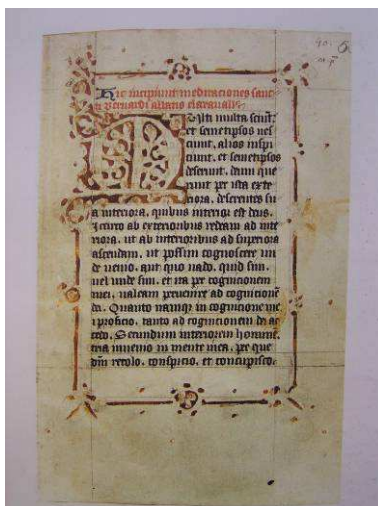 Hic incipiunt meditaciones sanc
ti Bernardi abbatis clareuall
Multi multa sciut
et semetipsos nes
ciunt. alios inspi
ciunt. et semetipsos
deserunt. deum que
runt per ista exte
riora. deserentes su
a interiora. quibus interior est deus.
Icirco ab exterioribus redeam ad inte
riora. ut ab interioribus ad superiora
ascendam. ut possim cognoscere un
de uenio. aut quo uado. quid sum.
uel unde sum. et ita per cognicionem
mei. ualeam peruenire ad cognicione
dei. Quanto namq in cognicione me
i proficio. tanto ad cognicionem dei ac
cedo. Secundum interiorem homine
tria inuenio in mente mea. per que
dm recolo. conspicio. et concupisco.